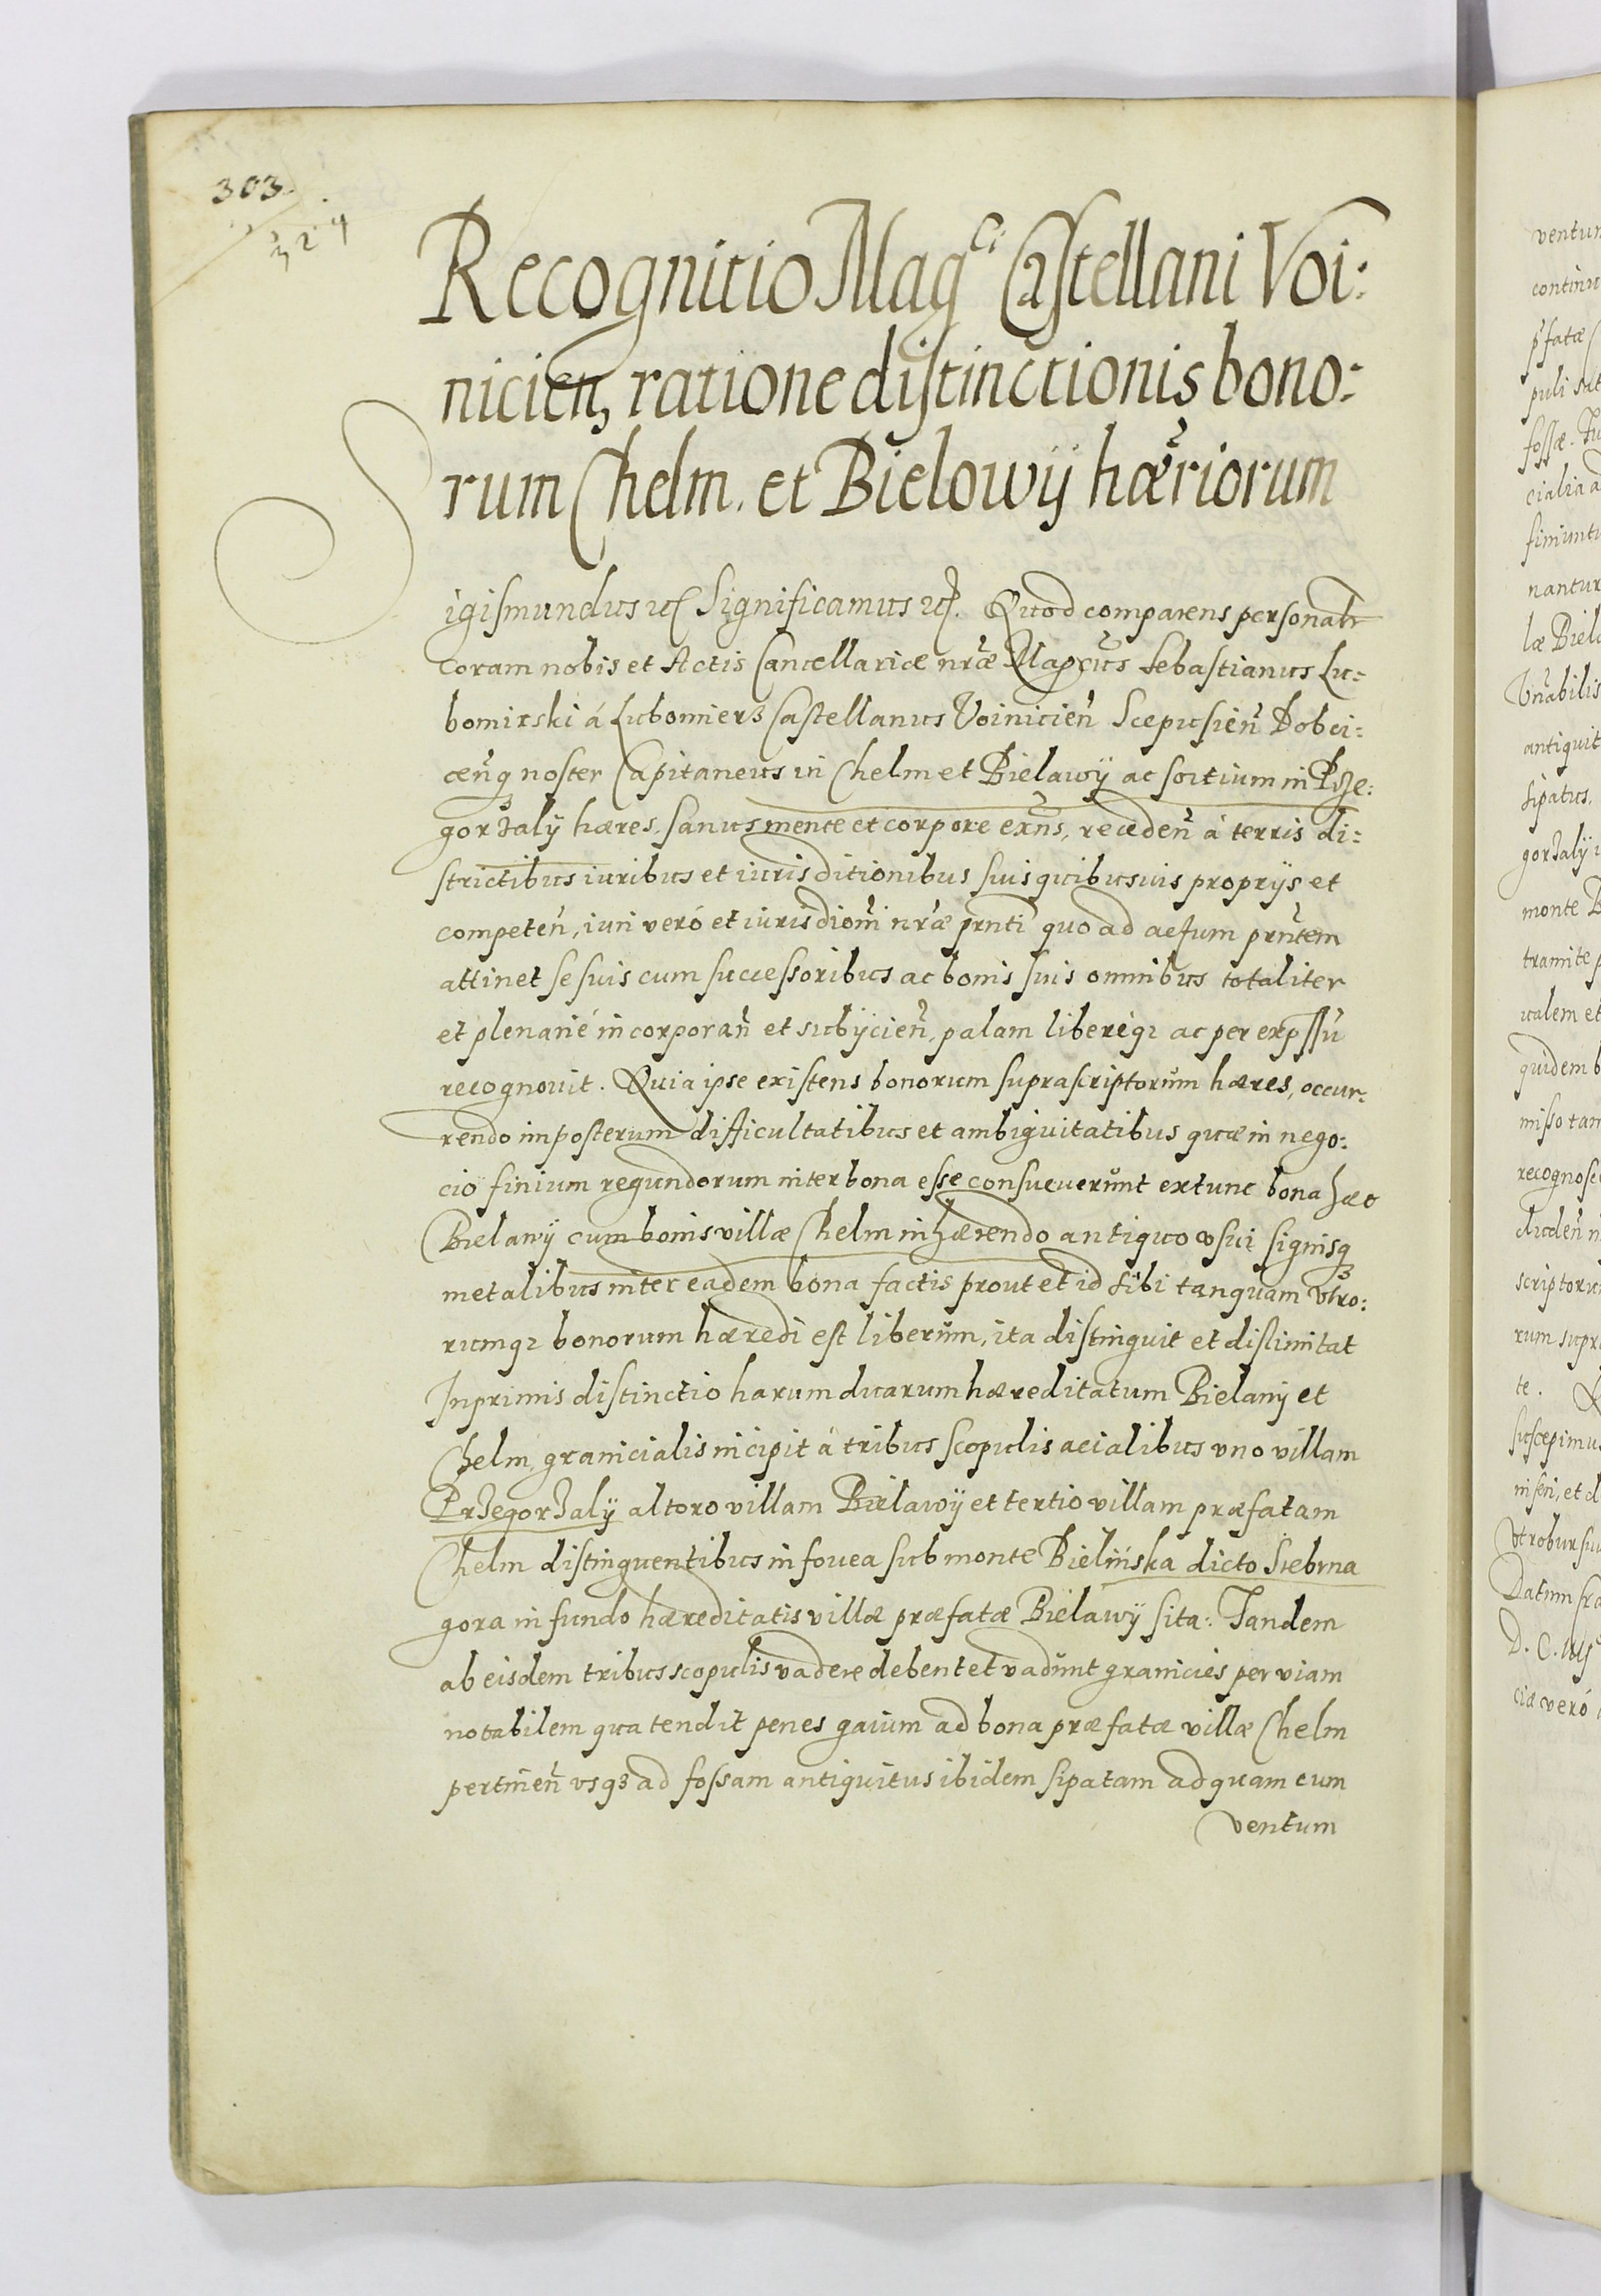 303.
324
Recognitio Mag^ci Castellani Voi:
nicien, ratione distinctionis bono:
rum Chelm. et Bielowÿ hæriorum
Sigismundus etc. Significamus etc. Quod comparens personalr
coram nobis et Actis Cancellariæ nræ Magcus Sebastianus Lu:
bomirski á Lubomierz Castellanus Voinicien Scepusien Dobci:
cenq noster Capitaneus in Chelm et Bielawÿ ac sortium in Prze:
gorzalÿ hæres. sanus mente et corpore exns, receden á terris di:
strictibus iuribus et iurisditionibus suis quibusuis proprÿs et
competen, iuri veró et iurisdioni nræ prnti quo ad actum prntem
attinet se suis cum successoribus ac bonis suis omnibus totaliter
et plenarié incorporan et subÿcien, palam liberéqz ac per expssu
recognouit. Quia ipse existens bonorum suprascriptorum hæres, occur:
rendo imposterum difficultatibus et ambiguitatibus quæ in nego:
cio finium regundorum inter bona esse consueuerunt extunc bona hæc
Bielanÿ cum bonis villæ Chelm inhærendo antiquo vsui signisq
metalibus inter eadem bona factis prout et id sibi tanquam vtro:
rumqz bonorum hæredi est liberum, ita distinguit et dislimitat
Inprimis distinctio harum duarum hæreditatum Bielanÿ et
Chelm granicialis incipit á tribus scopulis acialibus vno villam
Przegorzalÿ altoro villam Bielawÿ et tertio villam præfatam
Chelm distinguentibus in fouea sub monte Bielińska dicto Srebrna
gora in fundo hæreditatis villæ præfatæ Bielawÿ sita: Tandem
ab eisdem tribus scopulis vadere debent et vadunt granicies per viam
notabilem qua tendit penes gaium ad bona præfatæ villæ Chelm
pertinen vsqz ad fossam antiquitus ibidem sipatam ad quam cum
ventum